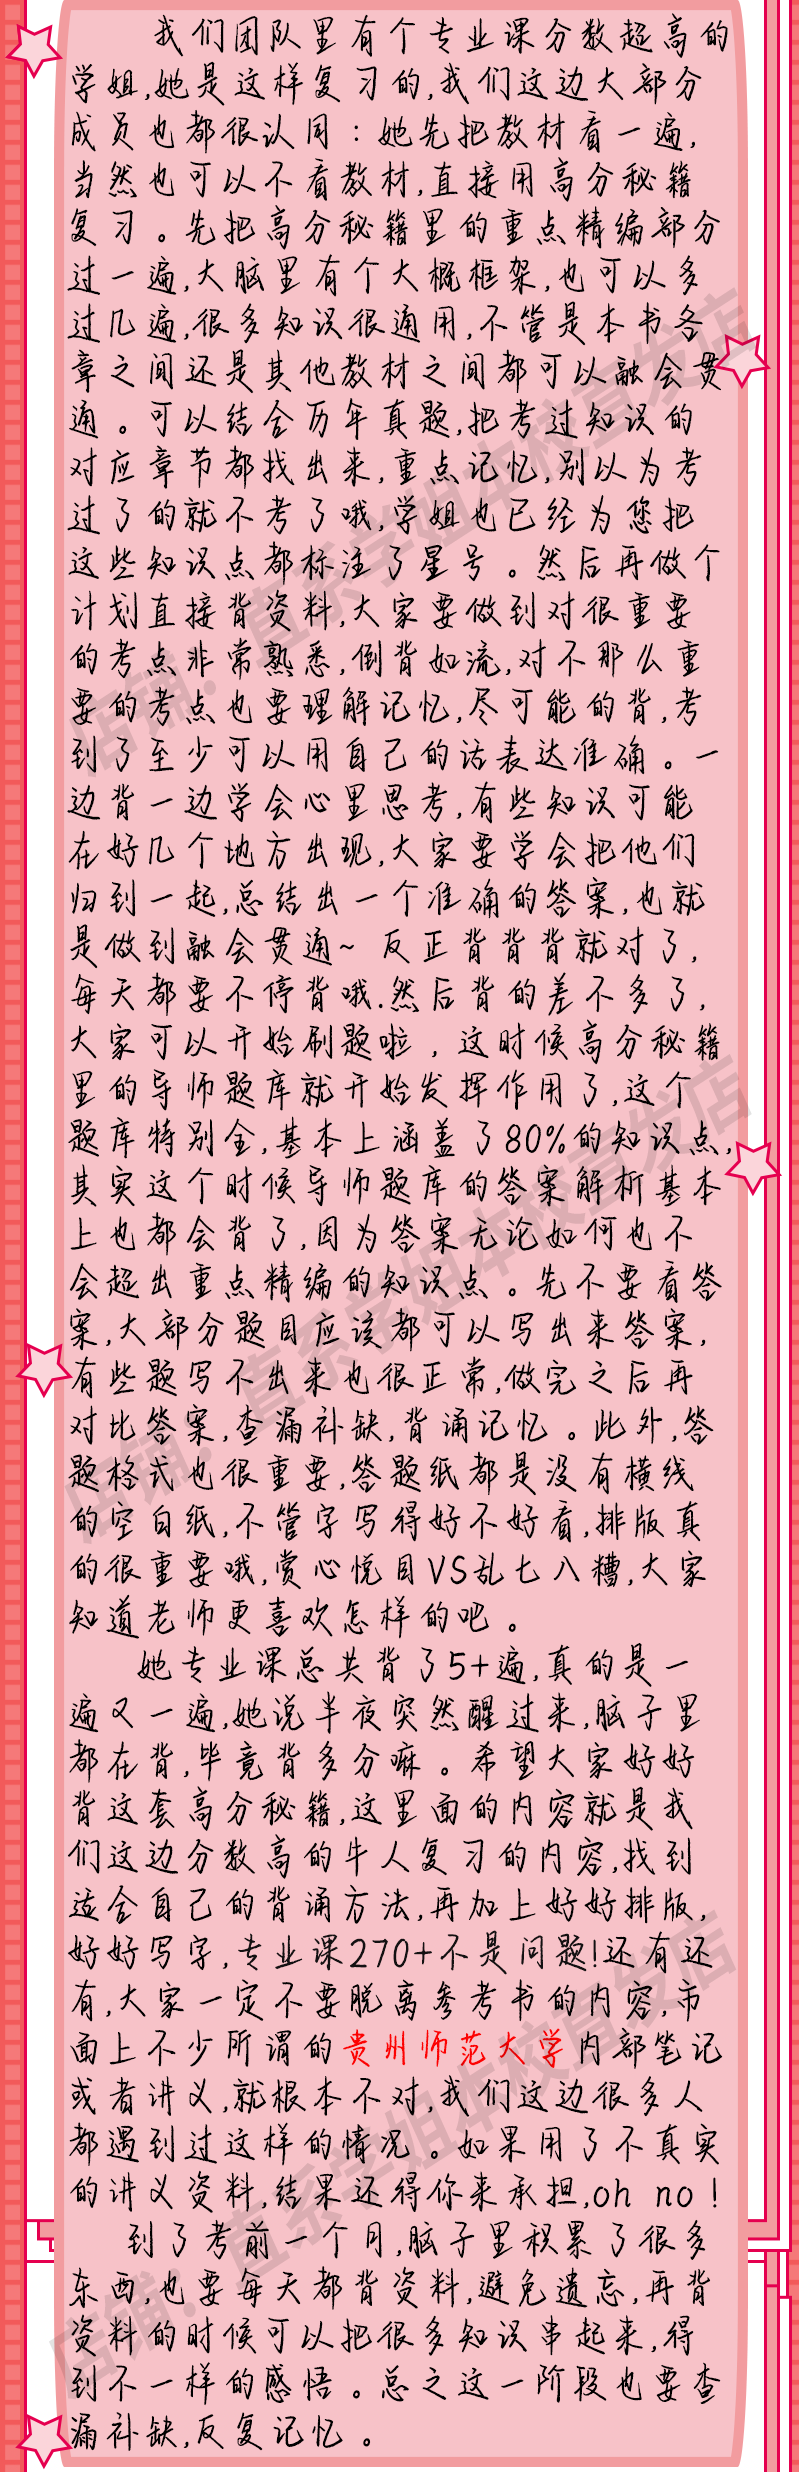 我们团队里有个专业课分数超高的
学姐,她是这样复习的,我们这边大部分
成员也都很认同：她先把教材看一遍,
当然也可以不看教材,直接用高分秘籍
复习。先把高分秘籍里的重点精编部分
过一遍,大脑里有个大概框架,也可以多
过几遍,很多知识很通用,不管是本书各
章之间还是其他教材之间都可以融会贯
通。可以结合历年真题,把考过知识的
对应章节都找出来,重点记忆,别以为考
过了的就不考了哦,学姐也已经为您把
这些知识点都标注了星号。然后再做个
计划直接背资料,大家要做到对很重要
的考点非常熟悉,倒背如流,对不那么重
要的考点也要理解记忆,尽可能的背,考
到了至少可以用自己的话表达准确。一
边背一边学会心里思考,有些知识可能
在好几个地方出现,大家要学会把他们
归到一起,总结出一个准确的答案,也就
是做到融会贯通~ 反正背背背就对了,
每天都要不停背哦.然后背的差不多了,
大家可以开始刷题啦，这时候高分秘籍
里的导师题库就开始发挥作用了,这个
题库特别全,基本上涵盖了80%的知识点,
其实这个时候导师题库的答案解析基本
上也都会背了,因为答案无论如何也不
会超出重点精编的知识点。先不要看答
案,大部分题目应该都可以写出来答案,
有些题写不出来也很正常,做完之后再
对比答案,查漏补缺,背诵记忆。此外,答
题格式也很重要,答题纸都是没有横线
的空白纸,不管字写得好不好看,排版真
的很重要哦,赏心悦目VS乱七八糟,大家
知道老师更喜欢怎样的吧。
她专业课总共背了5+遍,真的是一
遍又一遍,她说半夜突然醒过来,脑子里
都在背,毕竟背多分嘛。希望大家好好
背这套高分秘籍,这里面的内容就是我
们这边分数高的牛人复习的内容,找到
适合自己的背诵方法,再加上好好排版,
好好写字,专业课270+不是问题!还有还
有,大家一定不要脱离参考书的内容,市
面上不少所谓的贵州师范大学内部笔记
或者讲义,就根本不对,我们这边很多人
都遇到过这样的情况。如果用了不真实
的讲义资料,结果还得你来承担,oh no!
到了考前一个月,脑子里积累了很多
东西,也要每天都背资料,避免遗忘,再背
资料的时候可以把很多知识串起来,得
到不一样的感悟。总之这一阶段也要查
漏补缺,反复记忆。
店铺：直系学姐本校直发店
店铺：直系学姐本校直发店
店铺：直系学姐本校直发店